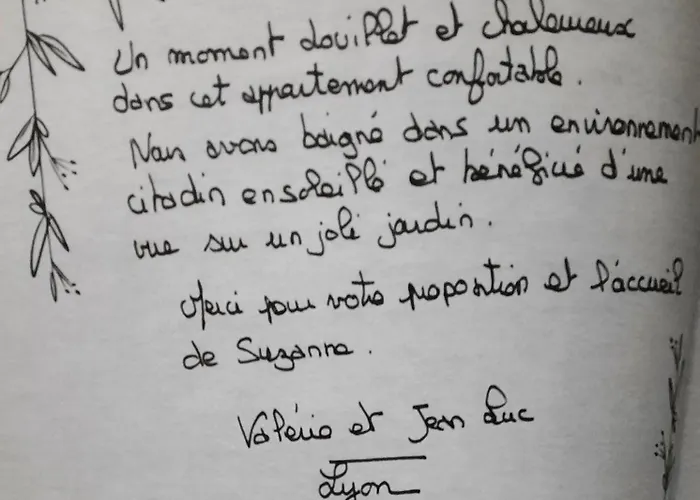 Un moment douillet et chaleureux
dans cet appartement confortable.
Nous avons baigné dans un environnement
citadin ensoleillé et bénéficié d'une
vue sur un joli jardin.
Merci pour votre proposition et l'accueil
de Suzanne.
Valérie et Jean Luc
Lyon